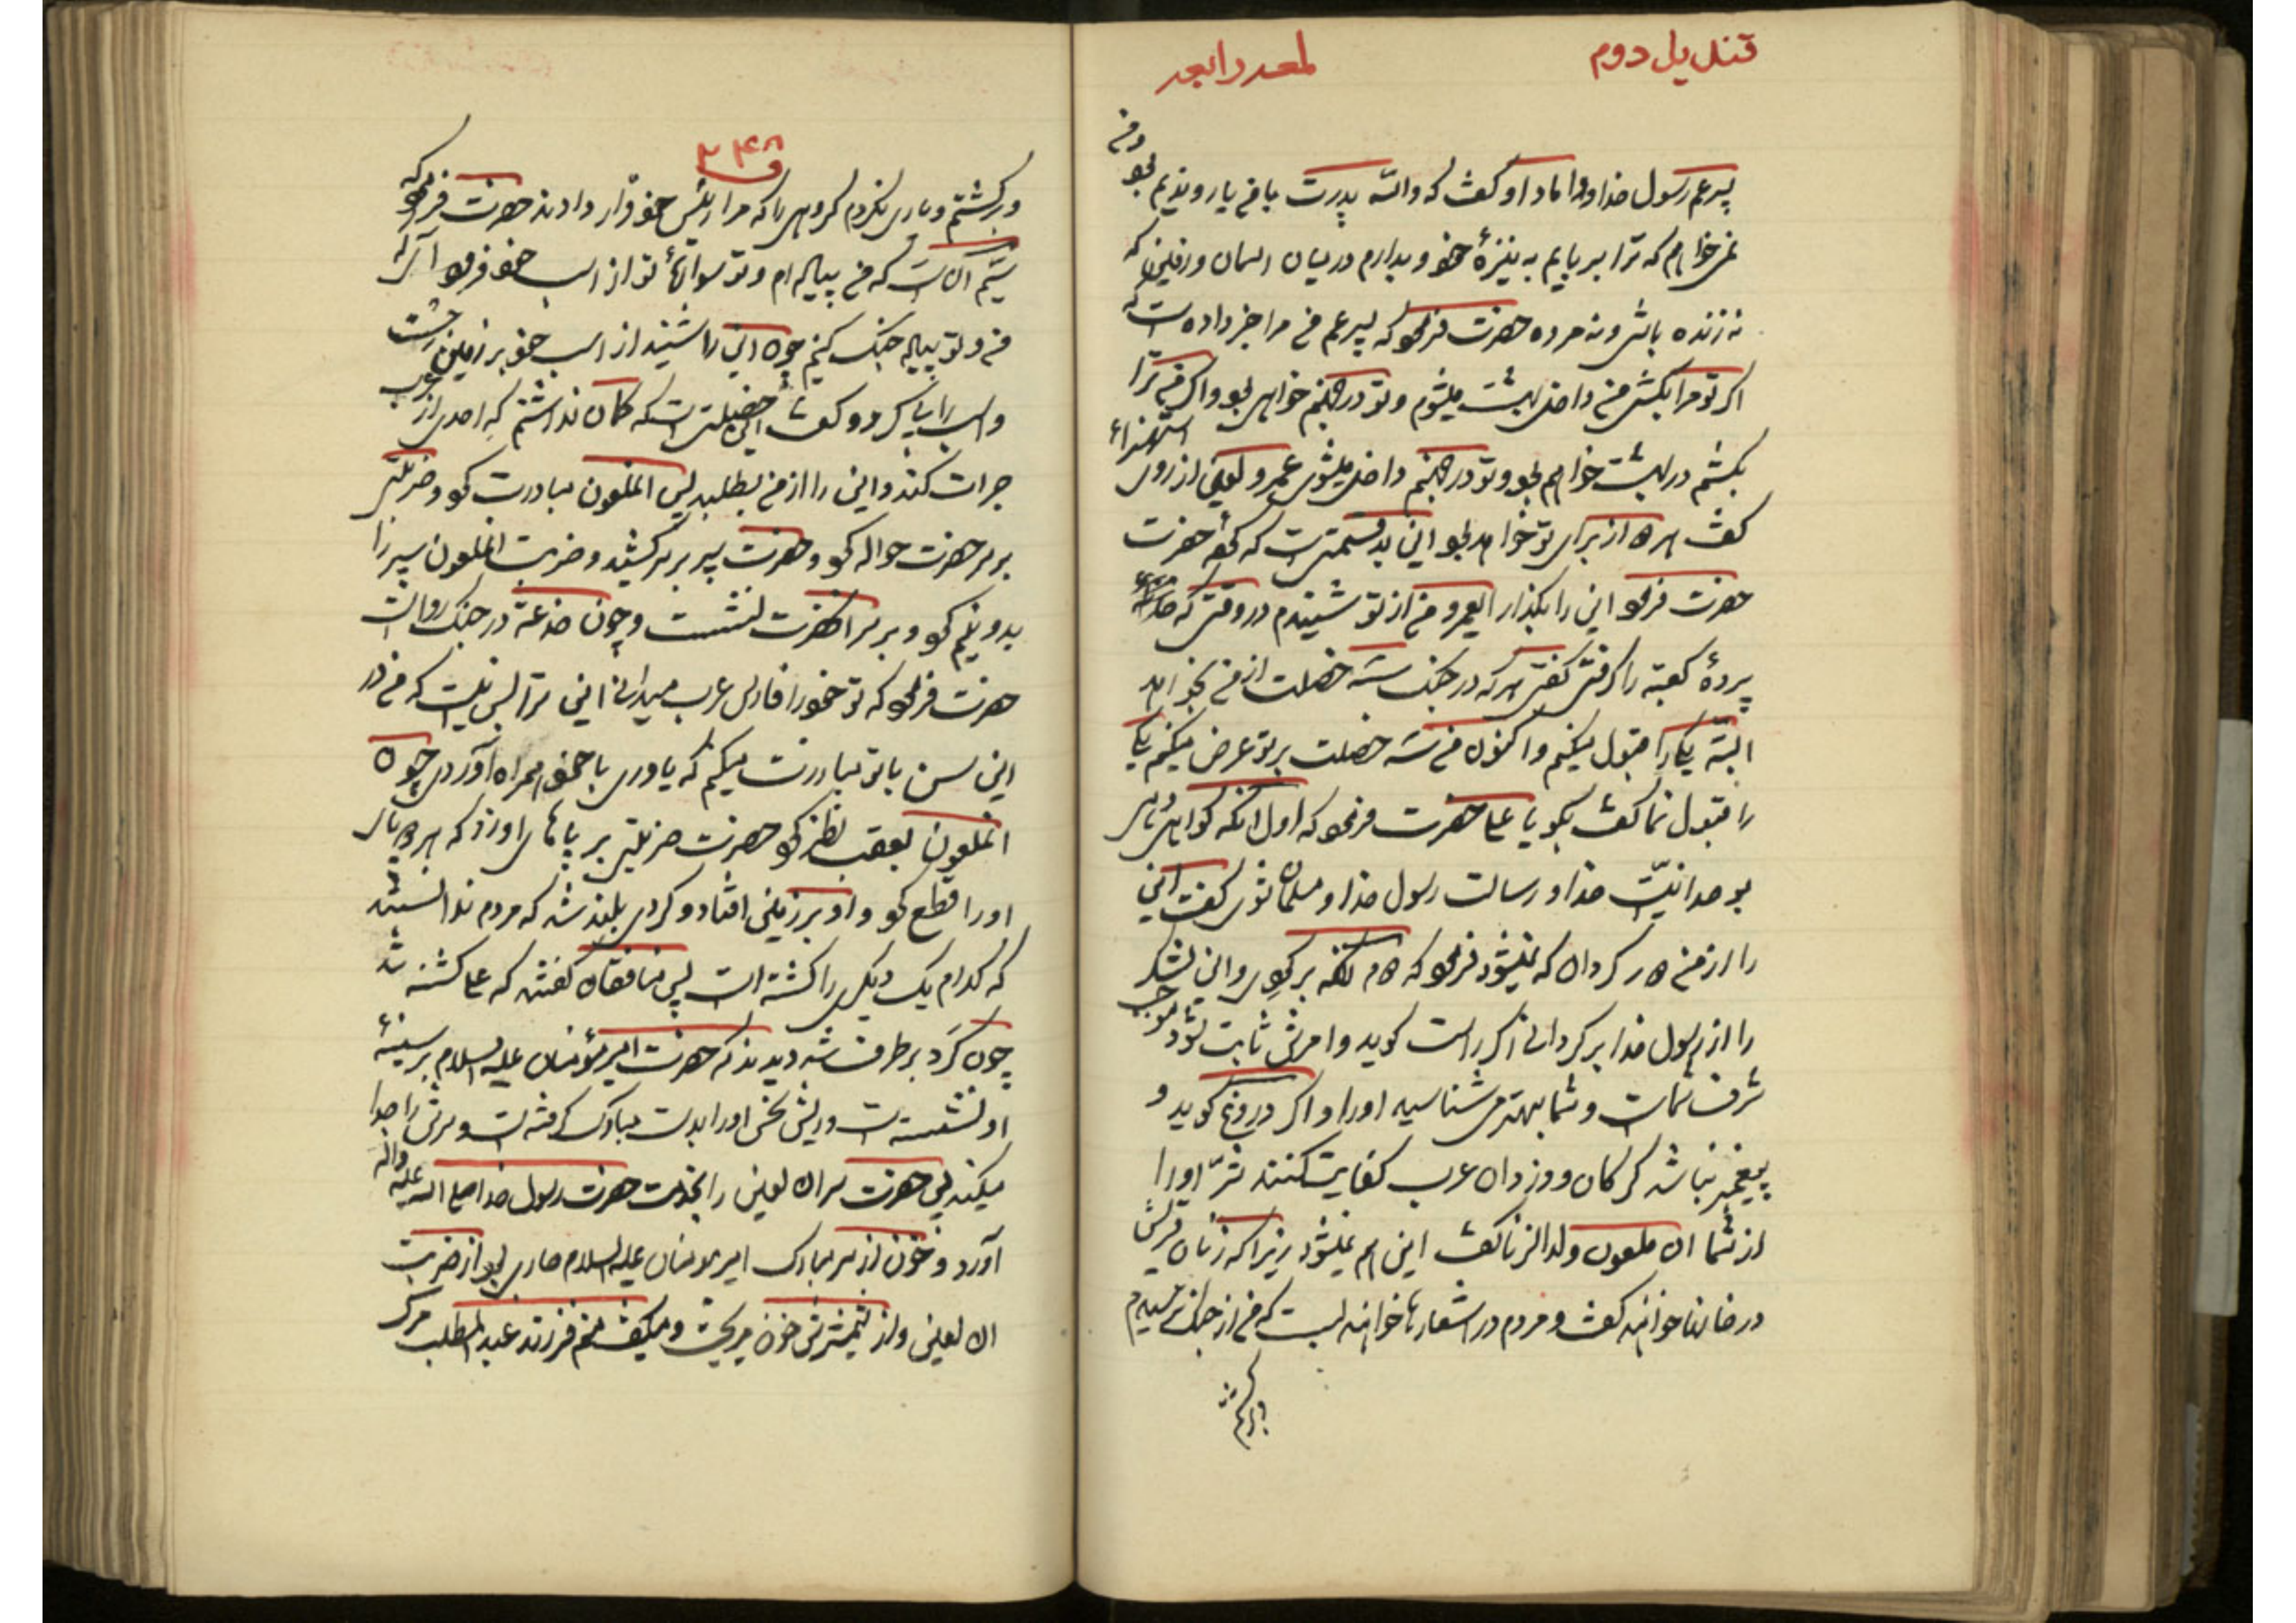 قندیل دوم
لمعه رابعه
پسر عم رسول خدا و داماد او گفت که والله پدرت با من یار و ندیم بود و من
نمیخواهم که ترا بربایم به نیزهٔ خود و بدارم در میان اسمان و زمین که
نه زنده باشی و نه مرده حضرت فرمود که پسر عم من مرا خبر داده است که
اگر تو مرا بکشی من داخل بهشت میشوم و تو در جهنم خواهی بود و اگر من ترا
بکشم در بهشت خواهم بود و تو در جهنم داخل میشوی عمرو لعین از روی استهزاء
گفت هر دو از برای تو خواهد بود این بد قسمتی است که
حضرت فرمود این را بگذار ایعمرو من از تو شنیدم در وقتی که
پردهٔ کعبه را گرفتی گفتی هر که در جنک سه خصلت از من بخواهد
البته یکی را قبول میکنم و اکنون من سه خصلت بر تو عرض میکنم یکی
را قبول نما گفت بگو یا علی حضرت فرمود که اول انکه گواهی دهی
بوحدانیت خدا و رسالت رسول خدا و مسلمان شوی گفت این
را از من دور گردان که نمیشود فرمود که دوم انکه برگردی و این لشکر
را از رسول خدا برگردانی اگر راست گوید و امرش ثابت شود موجب
شرف شماست و شما بهتر می شناسید او را و اگر دروغ گوید و
پیغمبر نباشد گرگان و دزدان عرب کفایت کنند شر او را
از شما ان ملعون ولدالزنا گفت این هم نمیشود زیرا که زنان قریش
در خانها خواهند گفت و مردم در اشعارها خواهند بست که من از جنک ترسیدم
و برگشتم
۳۴۸
و برگشتم و یاری نکردم گروهی را که مرا رئیس خود قرار دادند حضرت فرمود که
سیم آن است که من پیاده ام و تو سواره تو از اسب خود فرود آی که
من و تو پیاده جنک کنیم چون این را شنید از اسب خود بر زمین جست
و اسب را پی کرد و گفت این خصلتی است که گمان نداشتم که احدی از عرب
جرات کند و این را از من بطلبد پس انملعون مبادرت کرد و ضربتی
بر سر حضرت حواله کرد و حضرت سپر بر سر کشید و ضربت انملعون سپر را
بدو نیم کرد و بر سر انحضرت نشست و چون خدعه در جنک رواست
حضرت فرمود که تو خود را فارس عرب میدانی این ترا بس نیست که من در
این سن با تو مبارزت میکنم که یاوری با خود همراه آوردی چون
انملعون بعقب نظر کرد حضرت ضربتی بر پاهای او زد که هر دو پای
او را قطع کرد و او بر زمین افتاد و گردی بلند شد که مردم ندانستند
که کدام یک دیگری را کشته است پس منافقان گفتند که علی کشته شد
چون گرد بر طرف شد دیدند که حضرت امیر مؤمنان علیه السلام بر سینهٔ
او نشسته است و ریش نحس او را بدست مبارک گرفته است و سرش را جدا
میکند پس حضرت سر ان لعین را بخدمت حضرت رسول خدا صلی الله علیه واله
آورد و خون از سر مبارک امیر مومنان علیه السلام جاری بود از ضربت
ان لعین و از شمشیرش خون میریخت و میگفت منم فرزند عبدالمطلب مرک